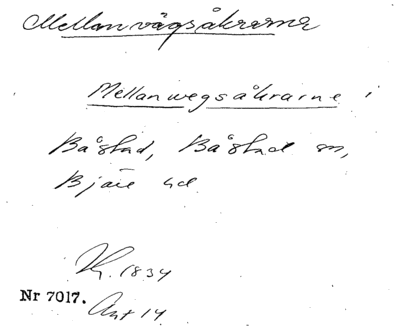 Mellanvägsåkrarna
Mellanwegsåkrarne i
Båstad, Båstad sn,
Bjäre hd
1834
Nr 7017.
Akt 14